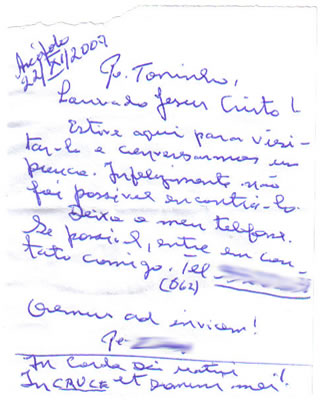 22/XI/2007
Pe. Toninho,
Louvado Jesus Cristo!
Estive aqui para visi-
tá-lo e conversarmos um
pouco. Infelizmente não
foi possível encontrá-lo.
Deixo o meu telefone.
Se possível, entre em con-
tato comigo. Tel
(062)
Oremus ad invicem!
Pe.
In Corda Dei
In CRUCE et Domini mei!